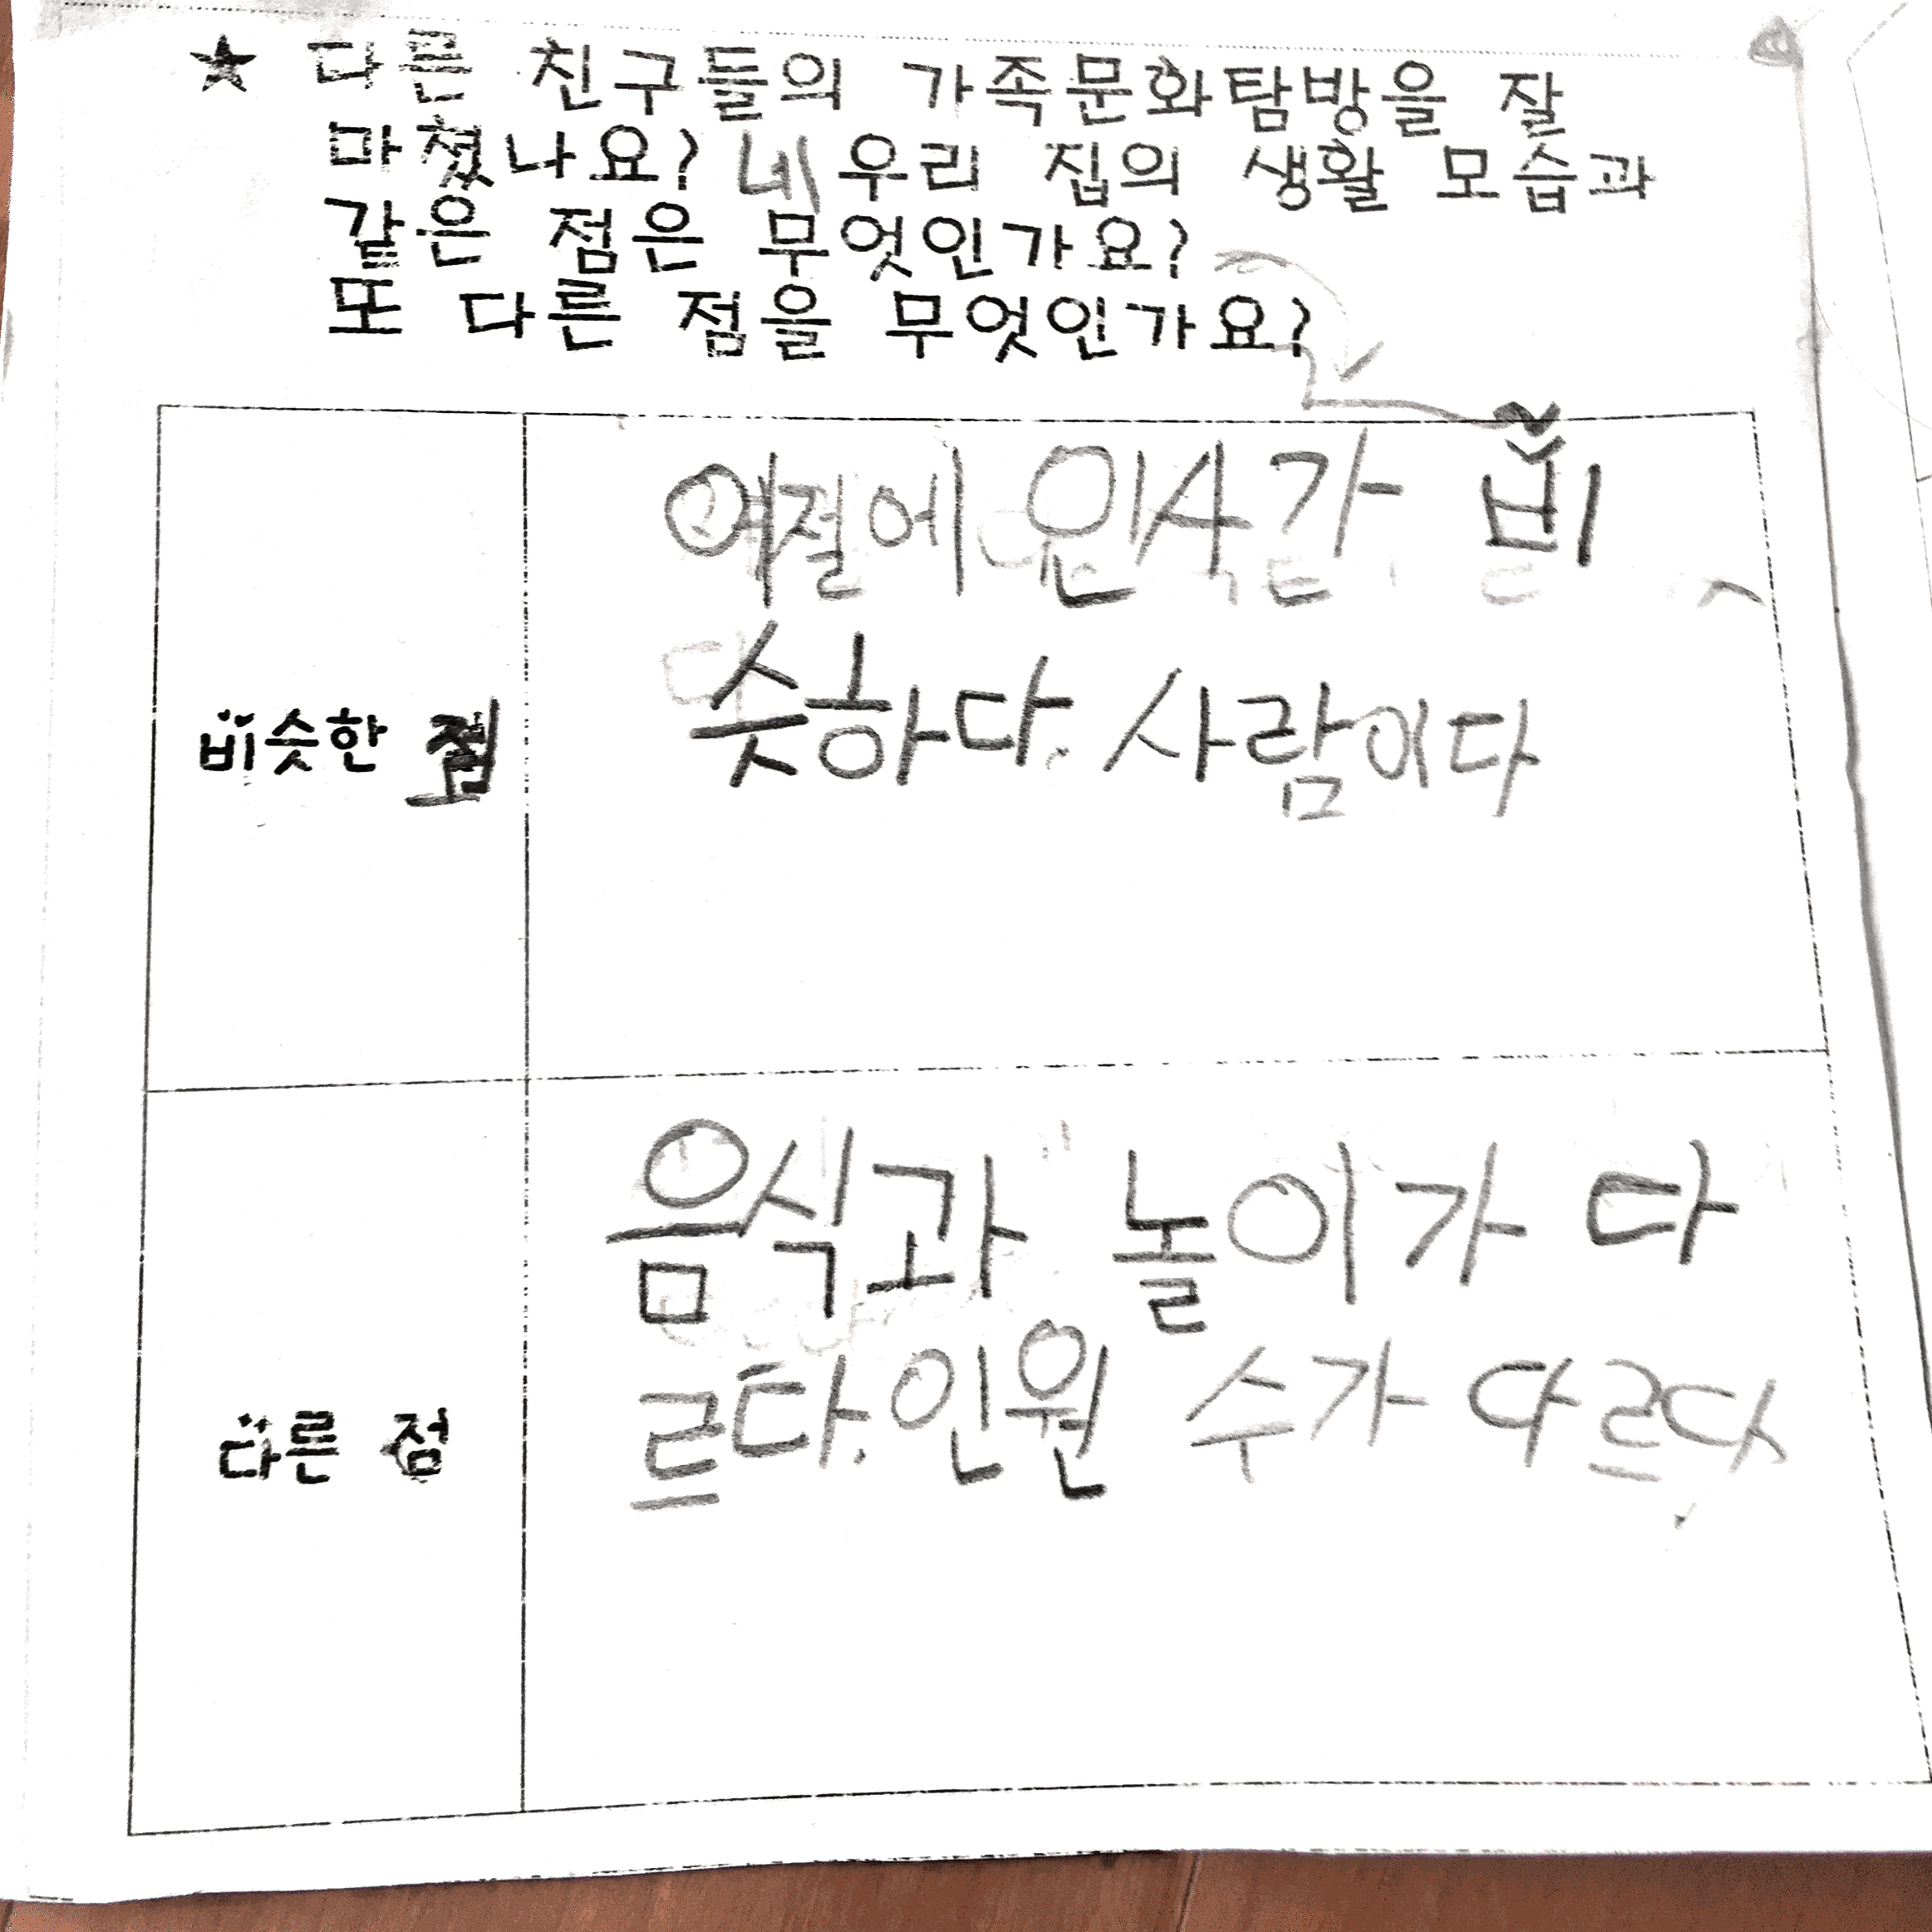 ★ 다른 친구들의 가족문화탐방을 잘
마쳤나요? 네 우리 집의 생활 모습과
같은 점은 무엇인가요?
또 다른 점을 무엇인가요?
예절에 인사가 비
슷하다. 사람이다
비슷한 점
음식과 놀이가 다
르다. 인원 수가 다르다
다른 점